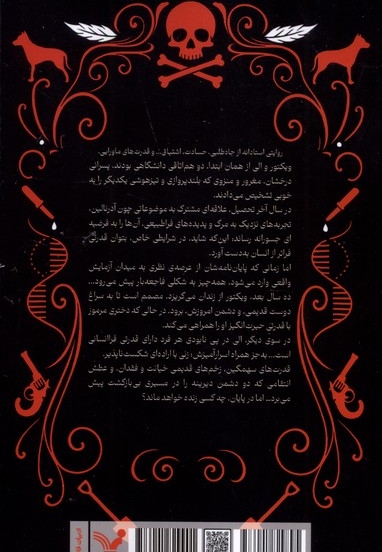 روایتی استادانه از جاه‌طلبی، حسادت، اشتیاق، و قدرت‌های ماورایی.
ویکتور و الی از همان ابتدا، دو هم‌اتاقی دانشگاهی بودند، پسرانی
درخشان، مغرور و منزوی که بلندپروازی و تیزهوشی یکدیگر را به
خوبی تشخیص می‌دادند.
در سال آخر تحصیل، علاقه‌ای مشترک به موضوعاتی چون آدرنالین،
تجربه‌های نزدیک به مرگ و پدیده‌های فراطبیعی، آن‌ها را به فرضیه
ای جسورانه رساند: این‌که شاید، در شرایطی خاص، بتوان قدرتی
فراتر از انسان به‌دست آورد.
اما زمانی که پایان‌نامه‌شان از عرصه‌ی نظری به میدان آزمایش
واقعی وارد می‌شود، همه‌چیز به شکلی فاجعه‌بار پیش می‌رود...
ده سال بعد، ویکتور از زندان می‌گریزد. مصمم است تا به سراغ
دوست قدیمی، و دشمن امروزش، برود. در حالی که دختری مرموز
با قدرتی حیرت‌انگیز او را همراهی می‌کند.
در سوی دیگر، الی در پی نابودی هر فرد دارای قدرتی فراانسانی
است... به‌جز همراه اسرارآمیزش؛ زنی با اراده‌ای شکست‌ناپذیر.
قدرت‌های سهمگین، زخم‌های قدیمی خیانت و فقدان، و عطش
انتقامی که دو دشمن دیرینه را در مسیری بی‌بازگشت پیش
می‌برد... اما در پایان، چه کسی زنده خواهد ماند؟